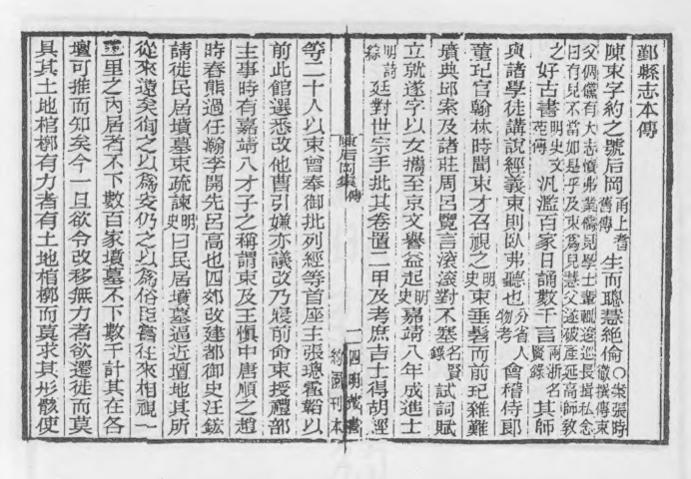 鄞縣志本傳
陳束字約之號后岡甬上耆舊傳生而聰慧絕倫○案張時徹撰傳束
父倜儻有大志憤弗業儒見學士輩輒逡巡長揖私念
曰有兒不當如是乎及束爲兒慧父遂破產延高師教
之好古書明史文苑傳汎濫百家日誦數千言兩浙名賢錄其師
與諸學徒講說經義束則臥弗聽也分省人物考會稽侍郎
董玘官翰林時聞束才召視之明史束垂髫而前玘雜難
墳典邱索及諸莊周呂覽言滾滾對不塞名賢錄試詞賦
立就遂字以女攜至京文譽益起明史嘉靖八年成進士
明詩綜廷對世宗手批其卷置二甲及考庶吉士得胡經
陳后岡集 傳
一 四明叢書
約園刊本
等二十人以束曾奉御批列經等首座主張璁霍韜以
前此館選悉改他曹引嫌亦議改乃寢前命束授禮部
主事時有嘉靖八才子之稱謂束及王愼中唐順之趙
時春熊過任瀚李開先呂高也四郊改建都御史汪鋐
請徙民居墳墓束疏諫明史曰民居墳墓逼近壇地其所
從來遠矣徇之以爲安仍之以爲俗臣嘗往來相視一
里之內居者不下數百家墳墓不下數千計其在各
壇可推而知矣今一旦欲令改移無力者欲遷徙而莫
具其土地棺槨有力者有土地棺槨而莫求其形骸使